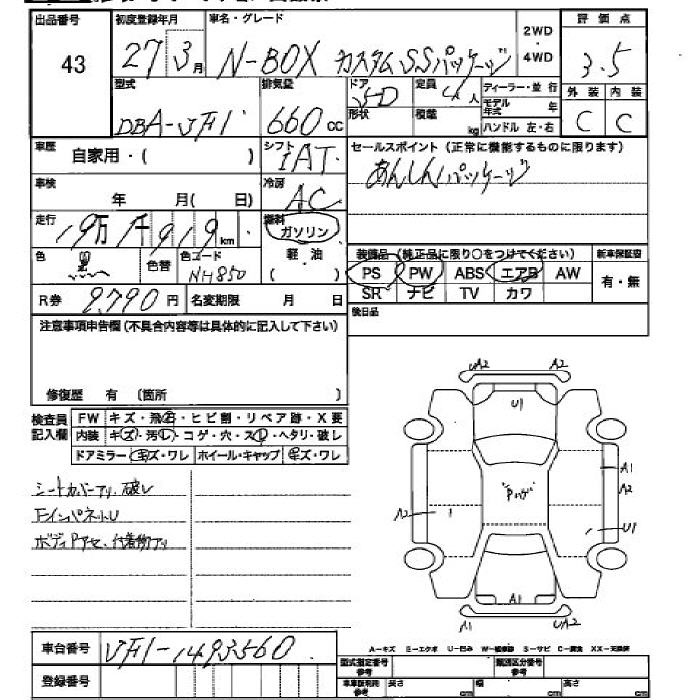 出品番号 初度登録年月 車名・グレード 2WD 評価点
43 27 3月 N-BOX カスタム SSパッケージ 4WD 3.5
型式 排気量 ドア 定員 ディーラー・並 行 外装 内装
DBA-JF1 660 CC 5D 4人 モデル年式 年 C C
形状 積載 kg ハンドル 左・右
車歴 自家用・( ) シフト IAT セールスポイント (正常に機能するものに限ります)
あんしんパッケージ
車検 年 月( 日) 冷房 AC
走行 19万 千919km 燃料 ガソリン
軽・油
( )
色 色替 色コード NH850
装備品 (純正品に限り○をつけてください) 新車保証書
PS PW ABS エアB AW 有・無
SR ナビ TV カワ
R券 9,790円 名変期限 月 日 後日品
注意事項申告欄(不具合内容等は具体的に記入して下さい)
修復歴 有 〔箇所 〕
検査員記入欄 FW キズ・飛石・ヒビ割・リペア跡・X要
内装 キズ・汚レ・コゲ・穴・スレ・ヘタリ・破レ
ドアミラー キズ・ワレ ホイール・キャップ キズ・ワレ
シートカバーアリ、破レ
FインパネルU
ボディPアセ、付着物アリ
A2 A2
U1
A1
A2 A2
1 Pハゲ
U1
A1
A1 U2
A-キズ M-エクボ U-凹み W-補修跡 S-サビ C-腐食 XX-交換済
車台番号 JF1-1493560
型式指定番号 参考 類別区分番号 参考
登録番号 車車証利用 参考 長さ cm 幅 cm 高さ cm